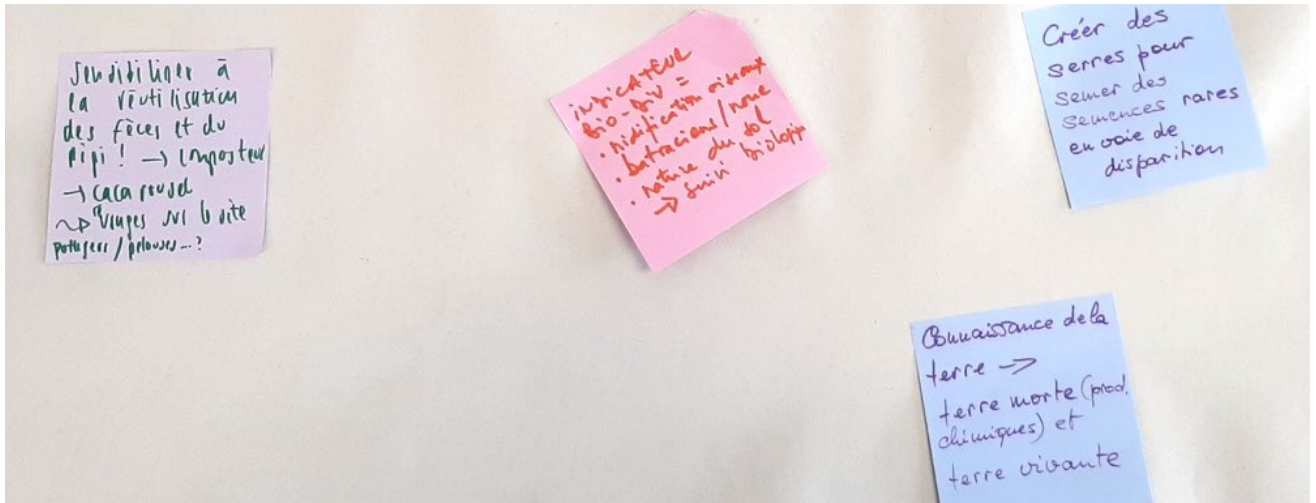 Sensibiliser à
la réutilisation
des fèces et du
pipi ! → composteur
→ caca rousel
usages sur le site
potagers / pelouses...?
INDICATEUR
BIO-DIV =
• nidification oiseaux
• batraciens / noue
• nature du sol
→ suivi biologique
Créer des
serres pour
semer des
semences rares
en voie de
disparition
Connaissance de la
terre →
terre morte (prod.
chimiques) et
terre vivante